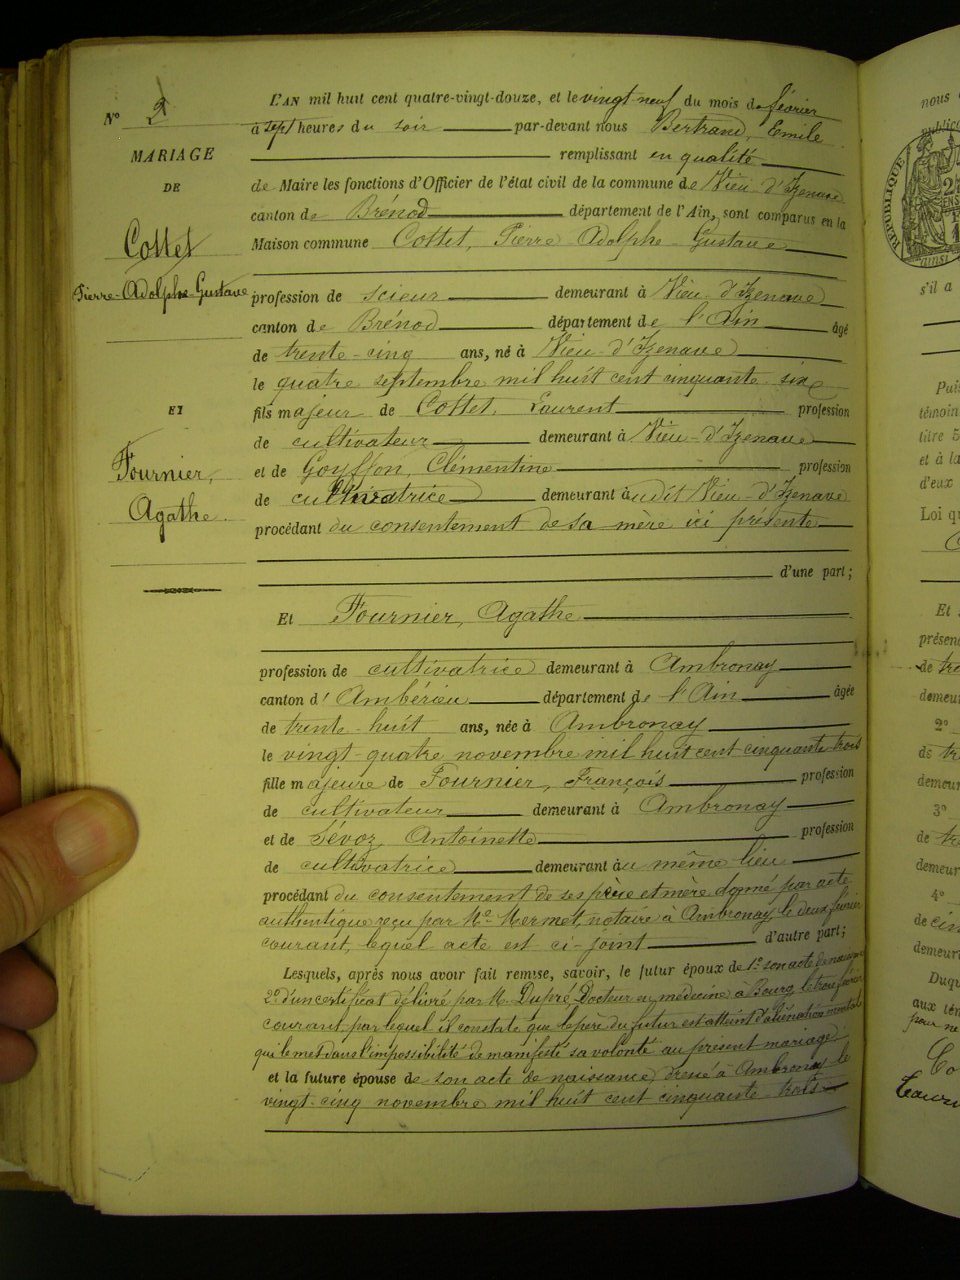 N° 2
MARIAGE
DE
Cottet
Pierre-Adolphe-Gustave
ET
Fournier,
Agathe
L'AN mil huit cent quatre-vingt-douze, et le vingt-neuf du mois de février
à sept heures du soir par-devant nous Bertrand, Emile
remplissant en qualité
de Maire les fonctions d'Officier de l'état civil de la commune de Vieu-d'Izenave
canton de Brénod département de l'Ain, sont comparus en la
Maison commune Cottet, Pierre Adolphe Gustave
profession de scieur demeurant à Vieu-d'Izenave
canton de Brénod département de l'Ain âgé
de trente-cinq ans, né à Vieu-d'Izenave
le quatre septembre mil huit cent cinquante six
fils majeur de Cottet, Laurent profession
de cultivateur demeurant à Vieu-d'Izenave
et de Goyffon, Clémentine profession
de cultivatrice demeurant audit Vieu-d'Izenave
procédant du consentement de sa mère ici présente
d'une part;
Et Fournier, Agathe
profession de cultivatrice demeurant à Ambronay
canton d'Ambérieu département de l'Ain âgée
de trente-huit ans, née à Ambronay
le vingt-quatre novembre mil huit cent cinquante trois
fille majeure de Fournier, François profession
de cultivateur demeurant à Ambronay
et de Antoinette profession
de cultivatrice demeurant au même lieu
procédant du consentement de ses père et mère donné par acte
authentique reçu par Me Mermet, notaire à Ambronay, le deux février
courant, lequel acte est ci-joint d'autre part;
Lesquels, après nous avoir fait remise, savoir, le futur époux de 1° son acte de naissance
2° d'un certificat délivré par M. Dupré, Docteur en médecine à Bourg, le trois février
courant, par lequel il constate que le père du futur est atteint d'aliénation mentale
qui le met dans l'impossibilité de manifesté sa volonté au présent mariage;
et la future épouse de son acte de naissance, dressé à Ambronay le
vingt-cinq novembre mil huit cent cinquante-trois
nous
RÉPUBLIQUE
s'il a
Puis
témoin
titre 5
et à la
d'eux
Loi qu
Et
présen
de
demeu
2°
de
demeur
3°
de
demeur
4°
de
demeur
Duqu
aux tém
pour ne
Co